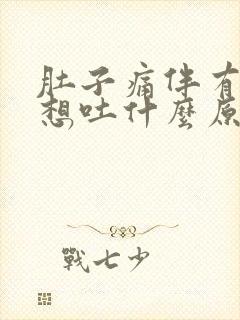 肚子痛伴有
想吐什麼原
戰七少